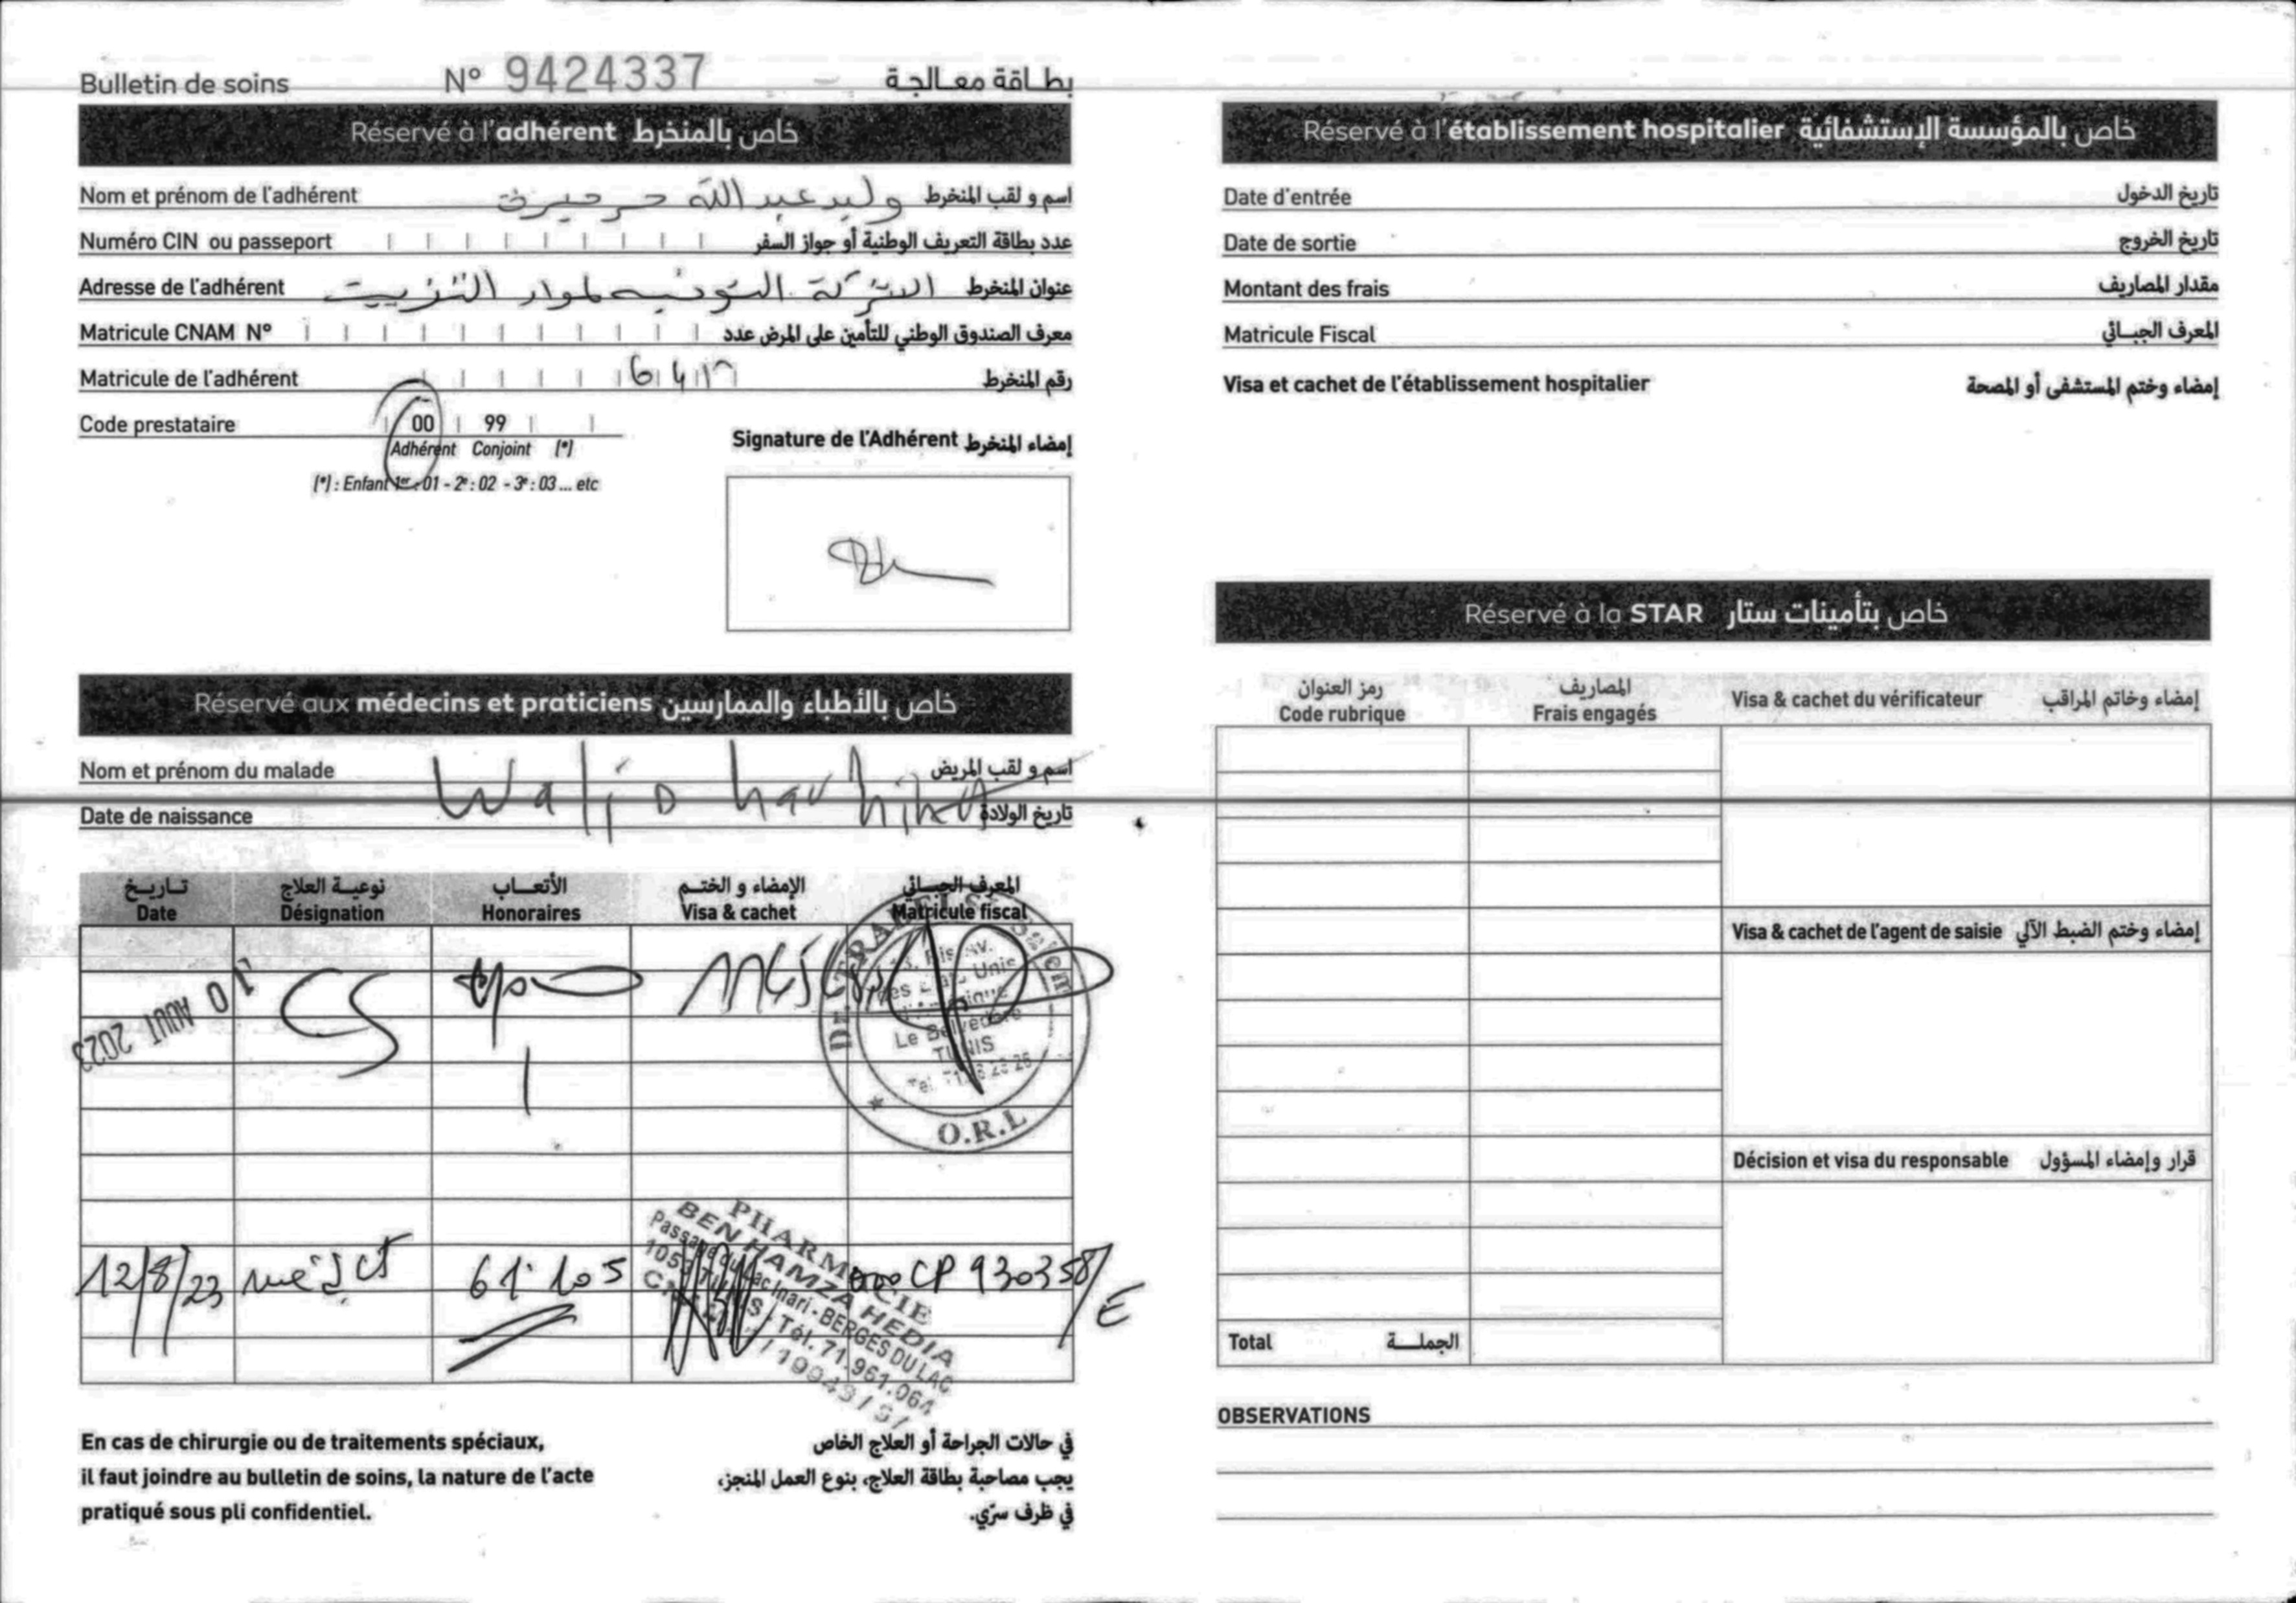 Bulletin de soins N° 9424337 بطاقة معالجة
Réservé à l'adhérent خاص بالمنخرط
Nom et prénom de l'adhérent وليد عبد الله اسم و لقب المنخرط
Numéro CIN ou passeport عدد بطاقة التعريف الوطنية أو جواز السفر
Adresse de l'adhérent الشركة التونسية لمواد التزييت عنوان المنخرط
Matricule CNAM N° معرف الصندوق الوطني للتأمين على المرض عدد
Matricule de l'adhérent رقم المنخرط
Code prestataire 00 99
Adhérent Conjoint (*)
(*) : Enfant 1er : 01 - 2e : 02 - 3e : 03 ... etc
Signature de l'Adhérent إمضاء المنخرط
Réservé aux médecins et praticiens خاص بالأطباء والممارسين
Nom et prénom du malade Walid اسم و لقب المريض
Date de naissance تاريخ الولادة
تاريخ نوعية العلاج الأتعاب الإمضاء و الختم المعرف الجبائي
Date Désignation Honoraires Visa & cachet Matricule fiscal
10 AOUT 2023 CS
Dr.
Bis Av.
des Etats Unis
Le Belvédère
TUNIS
O.R.L
PHARMACIE
BEN HAMZA HEDIA
Passage du Lac Inari - BERGES DU LAC
1053 TUNIS - Tél. 71.961.064
12/8/23 61.105 CP 930358/E
En cas de chirurgie ou de traitements spéciaux,
il faut joindre au bulletin de soins, la nature de l'acte
pratiqué sous pli confidentiel.
في حالات الجراحة أو العلاج الخاص
يجب مصاحبة بطاقة العلاج، بنوع العمل المنجز،
في ظرف سرّي.
Réservé à l'établissement hospitalier خاص بالمؤسسة الإستشفائية
Date d'entrée تاريخ الدخول
Date de sortie تاريخ الخروج
Montant des frais مقدار المصاريف
Matricule Fiscal المعرف الجبائي
Visa et cachet de l'établissement hospitalier إمضاء وختم المستشفى أو المصحة
Réservé à la STAR خاص بتأمينات ستار
رمز العنوان المصاريف
Code rubrique Frais engagés Visa & cachet du vérificateur إمضاء وخاتم المراقب
Visa & cachet de l'agent de saisie إمضاء وختم الضبط الآلي
Décision et visa du responsable قرار وإمضاء المسؤول
Total الجملة
OBSERVATIONS